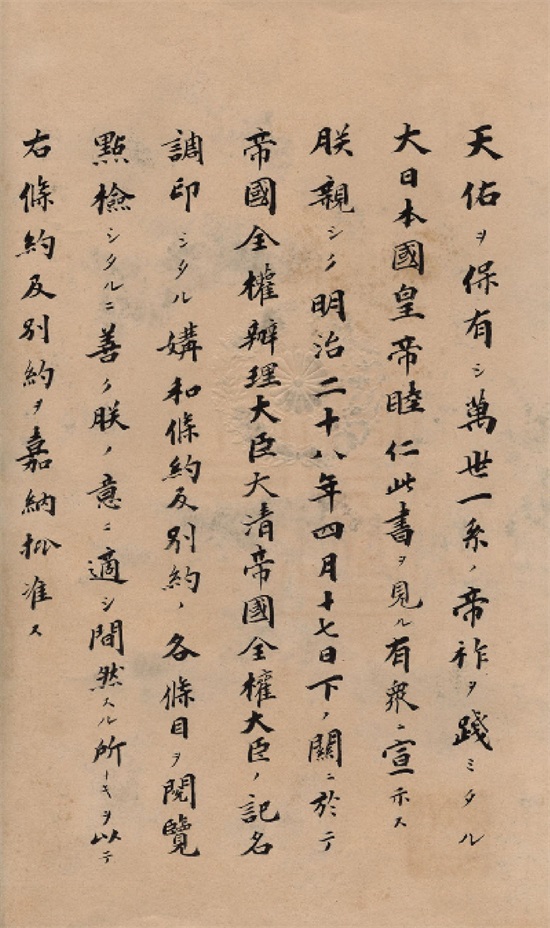 天佑ヲ保有シ萬世一系ノ帝祚ヲ踐ミタル
大日本國皇帝睦仁此書ヲ見ル有衆ニ宣示ス
朕親シク明治二十八年四月十七日下ノ關ニ於テ
帝國全權辦理大臣大清帝國全權大臣ノ記名
調印シタル媾和條約及別約ノ各條目ヲ閲覽
點檢シタルニ善ク朕ノ意ニ適シ間然スル所ナキヲ以テ
右條約及別約ヲ嘉納批准ス